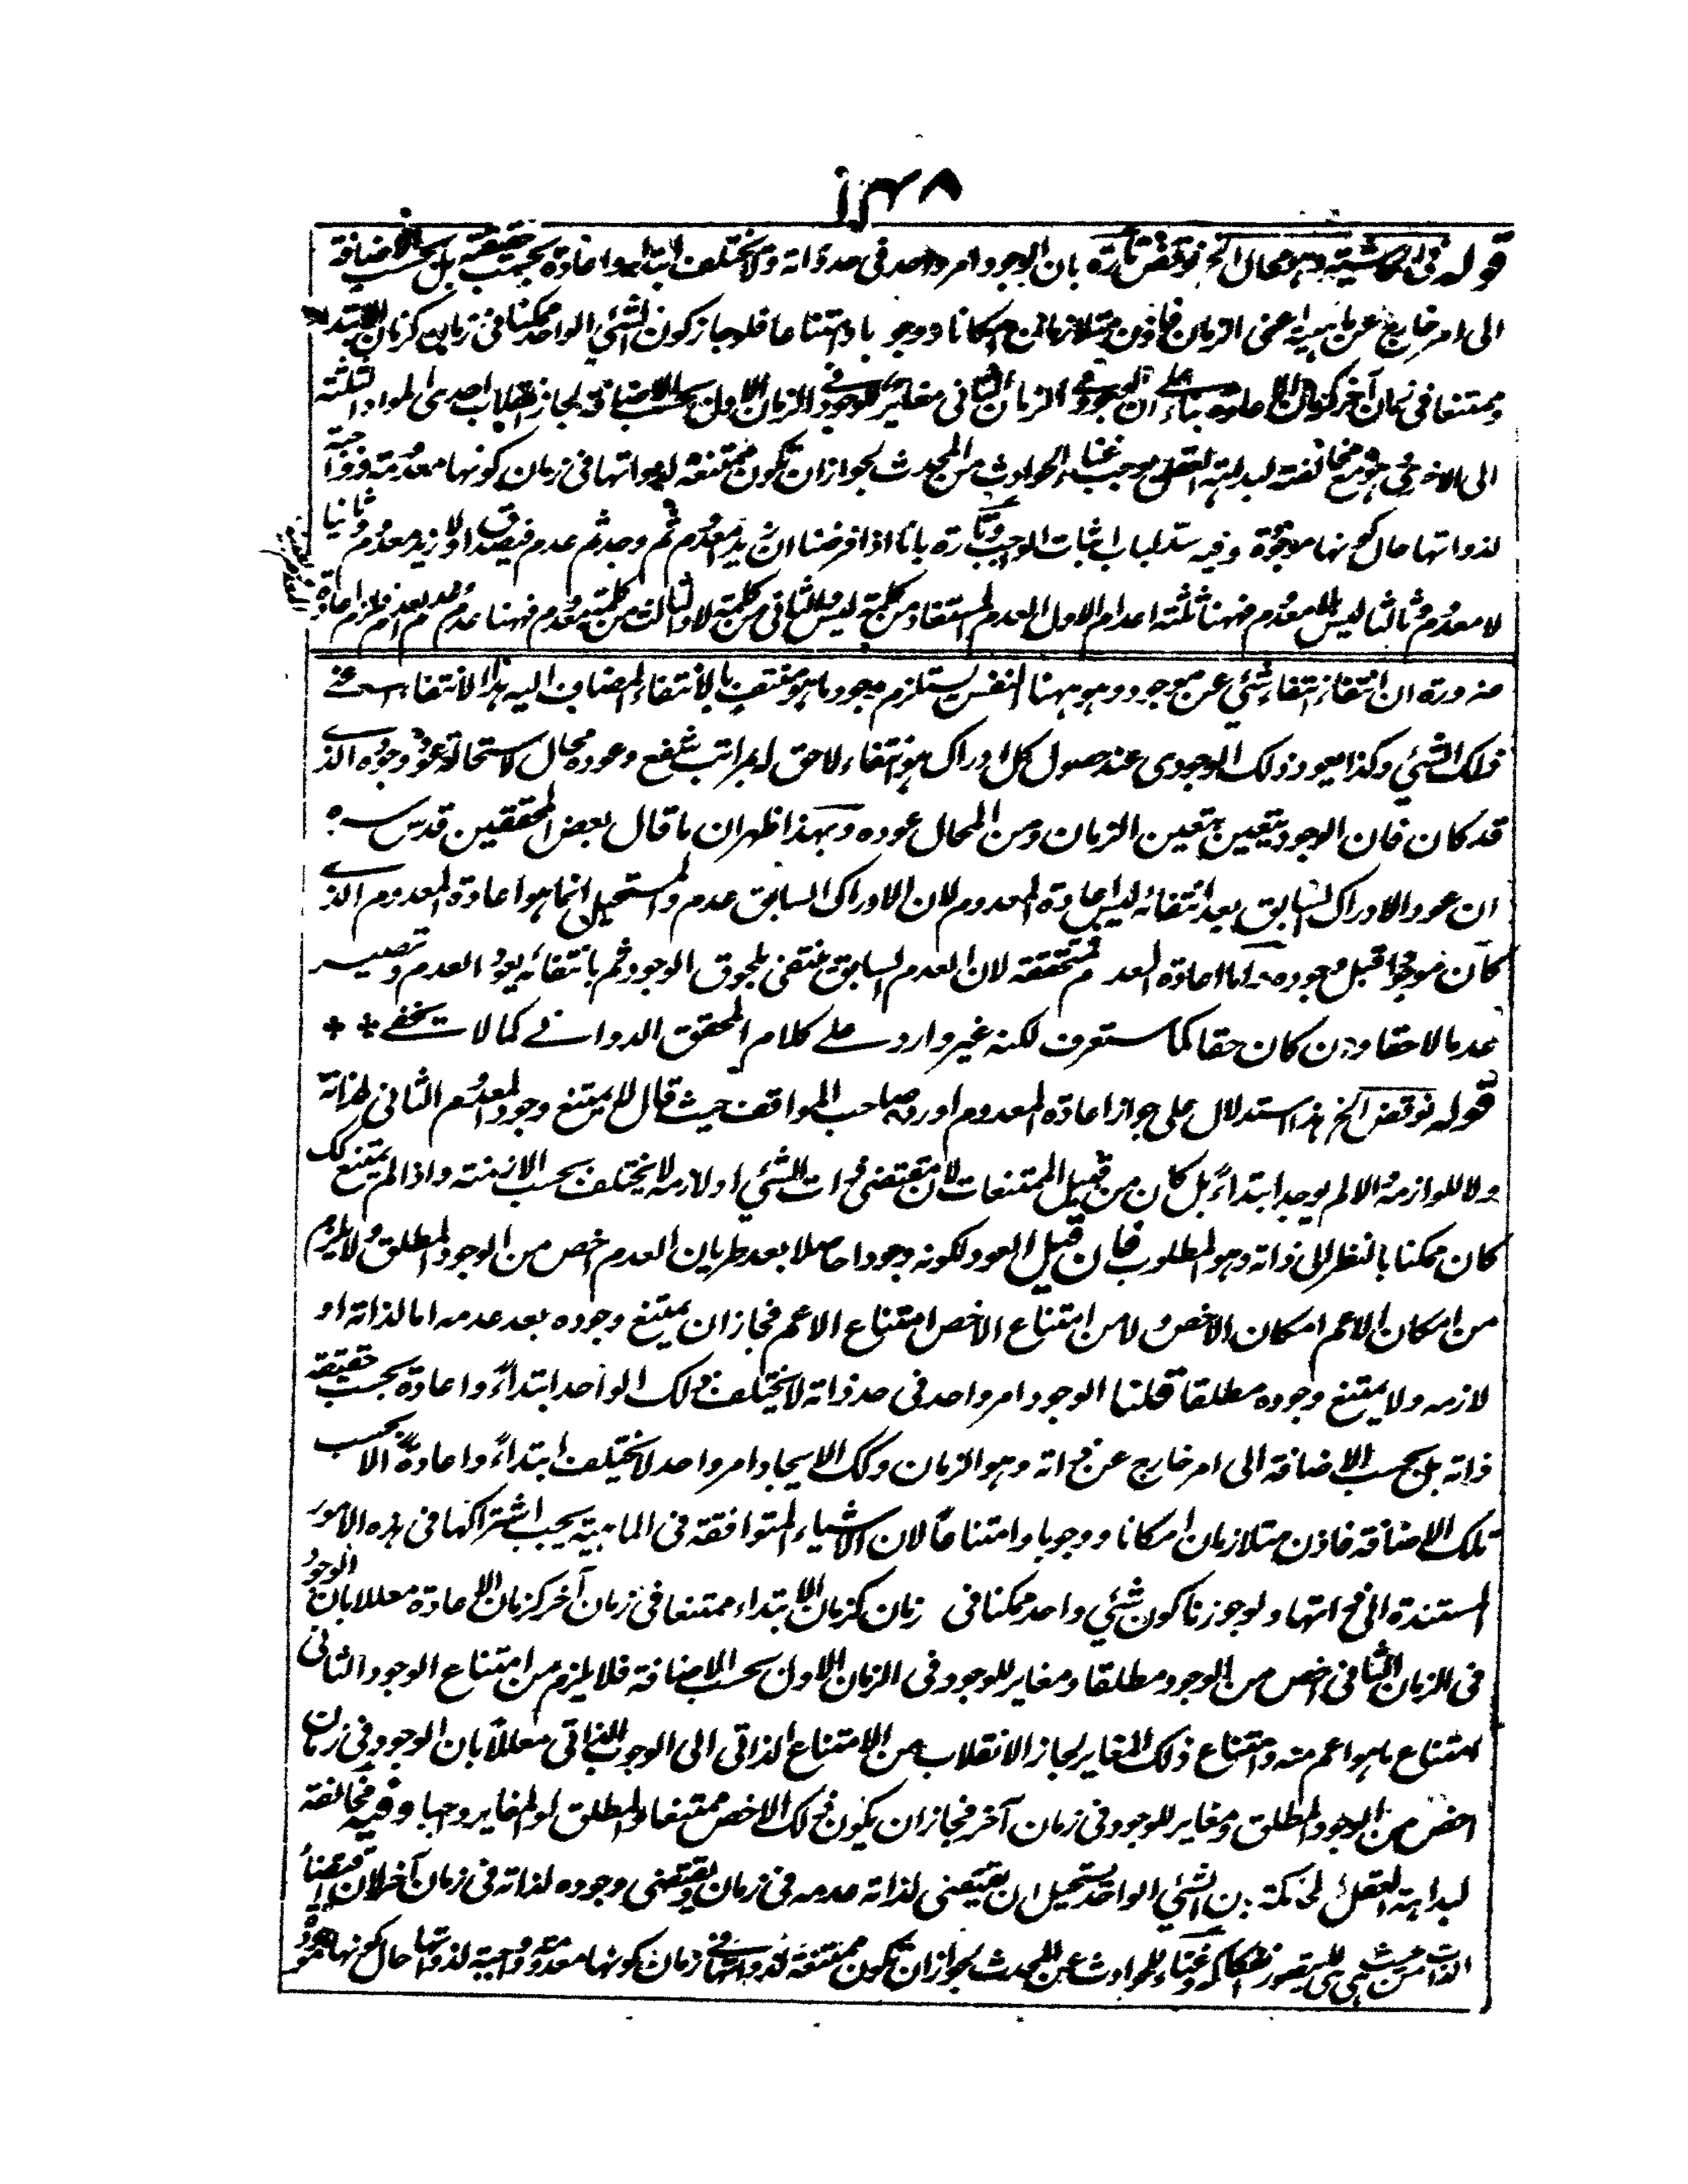 ١٣٨
قوله فى الحاشية وهو محال الخ نوقض تارة بان الوجود امر واحد فى حد ذاته ولا يختلف ابتداء واعادة بحسب حقيقته بل بحسب الاضافة
الى امر خارج عن ماهيته اعنى الزمان فاذن متلازمان امكانا ووجوبا وامتناعا فلو جاز كون الشئ الواحد ممكنا فى زمان كزمان الابتداء
وممتنعا فى زمان آخر كزمان الاعادة بناء على ان الوجود فى الزمان الثانى مغاير للوجود فى الزمان الاول بحسب الاضافة لجاز انقلاب احدى المواد الثلثة
الى الاخرى وهو مع مخالفته لبداهة العقل يوجب غناء الحوادث من المحدث لجواز ان تكون ممتنعة لذواتها فى زمان كونها معدومة وواجبة
لذواتها حال كونها موجودة وفيه سد لباب اثبات الواجب وتارة بانا اذا فرضنا ان زيد معدوم ثم وجد ثم عدم فيصدق اولا زيد معدوم وثانيا
لا معدوم وثالثا ليس بلا معدوم فههنا ثلثة اعدام الاول العدم المستفاد من كلمة ليس والثانى من كلمة لا والثالث من كلمة معدوم فههنا عدم بعد عدم فلزم اعادة
ضرورة ان انتفاء انتفاء شئ عن موجود وهو ههنا النفس يستلزم وجود ما هو منتف بالانتفاء المضاف اليه هذا الانتفاء اعنى
ذلك الشئ وكذا يعود ذلك الوجودى عند حصول كل ادراك هو انتفاء لاحق له بمراتب شفع وعوده محال لاستحالة عود وجوده الذى
قد كان فان الوجود يتعين بتعين الزمان ومن المحال عوده وبهذا ظهر ان ما قال بعض المحققين قدس سره
ان عود الادراك السابق بعد انتفائه ليس اعادة المعدوم لان الادراك السابق عدم والمستحيل انما هو اعادة المعدوم الذى
كان موجودا قبل وجوده واما اعادة العدم فمتحققة لان العدم السابق ينتفى بلحوق الوجود ثم بانتفائه يعود العدم وتصيير
عدما لاحقا وان كان حقا كما ستعرف لكنه غير وارد على كلام المحقق الدوانى كما لا يخفى
قوله نوقض الخ هذا استدلال على جواز اعادة المعدوم اورده صاحب المواقف حيث قال لا يمتنع وجود المعدوم الثانى لذاته
ولا للوازمه والا لم يوجد ابتداءً بل كان من قبيل الممتنعات لان مقتضى ذات الشئ او لازمه لا يختلف بحسب الازمنة واذا لم يمتنع كك
كان ممكنا بالنظر الى ذاته وهو المطلوب فان قيل العود لكونه وجودا حاصلا بعد طريان العدم اخص من الوجود المطلق ولا يلزم
من امكان الاعم امكان الاخص ولا من امتناع الاخص امتناع الاعم فجاز ان يمتنع وجوده بعد عدمه اما لذاته او
لازمه ولا يمتنع وجوده مطلقا قلنا الوجود امر واحد فى حد ذاته لا يختلف ذلك الواحد ابتداءً واعادة بحسب حقيقته
ذاته بل بحسب الاضافة الى امر خارج عن ذاته وهو الزمان وكك الايجاد امر واحد لا يختلف ابتداءً واعادةً الا بحسب
تلك الاضافة فاذن متلازمان امكانا ووجوبا وامتناعاً لان الاشياء المتوافقة فى الماهية يجب اشتراكها فى هذه الامور
المستندة الى ذواتها ولو جوزنا كون شئ واحد ممكنا فى زمان كزمان الابتداء ممتنعا فى زمان آخر كزمان الاعادة معللا بان الوجود
فى الزمان الثانى اخص من الوجود مطلقا ومغاير للوجود فى الزمان الاول بحسب الاضافة فلا يلزم من امتناع الوجود الثانى
امتناع ما هو اعم منه وامتناع ذلك المغاير لجاز الانقلاب من الامتناع الذاتى الى الوجوب الذاتى معللاً بان الوجود فى زمان
اخص من الوجود المطلق ومغاير للوجود فى زمان آخر فجاز ان يكون ذلك الاخص ممتنعا والمطلق او المغاير واجبا وفيه مخالفة
لبداهة العقل الحاكمة بان الشئ الواحد يستحيل ان يقتضى لذاته عدمه فى زمان ويقتضى وجوده لذاته فى زمان آخر لان اقتضاء
الذات من حيث هى هى لا يتصور انفكاكه وغناء للحوادث عن المحدث لجواز ان تكون ممتنعة لذواتها فى زمان كونها معدومة وواجبة لذواتها حال كونها موجودة